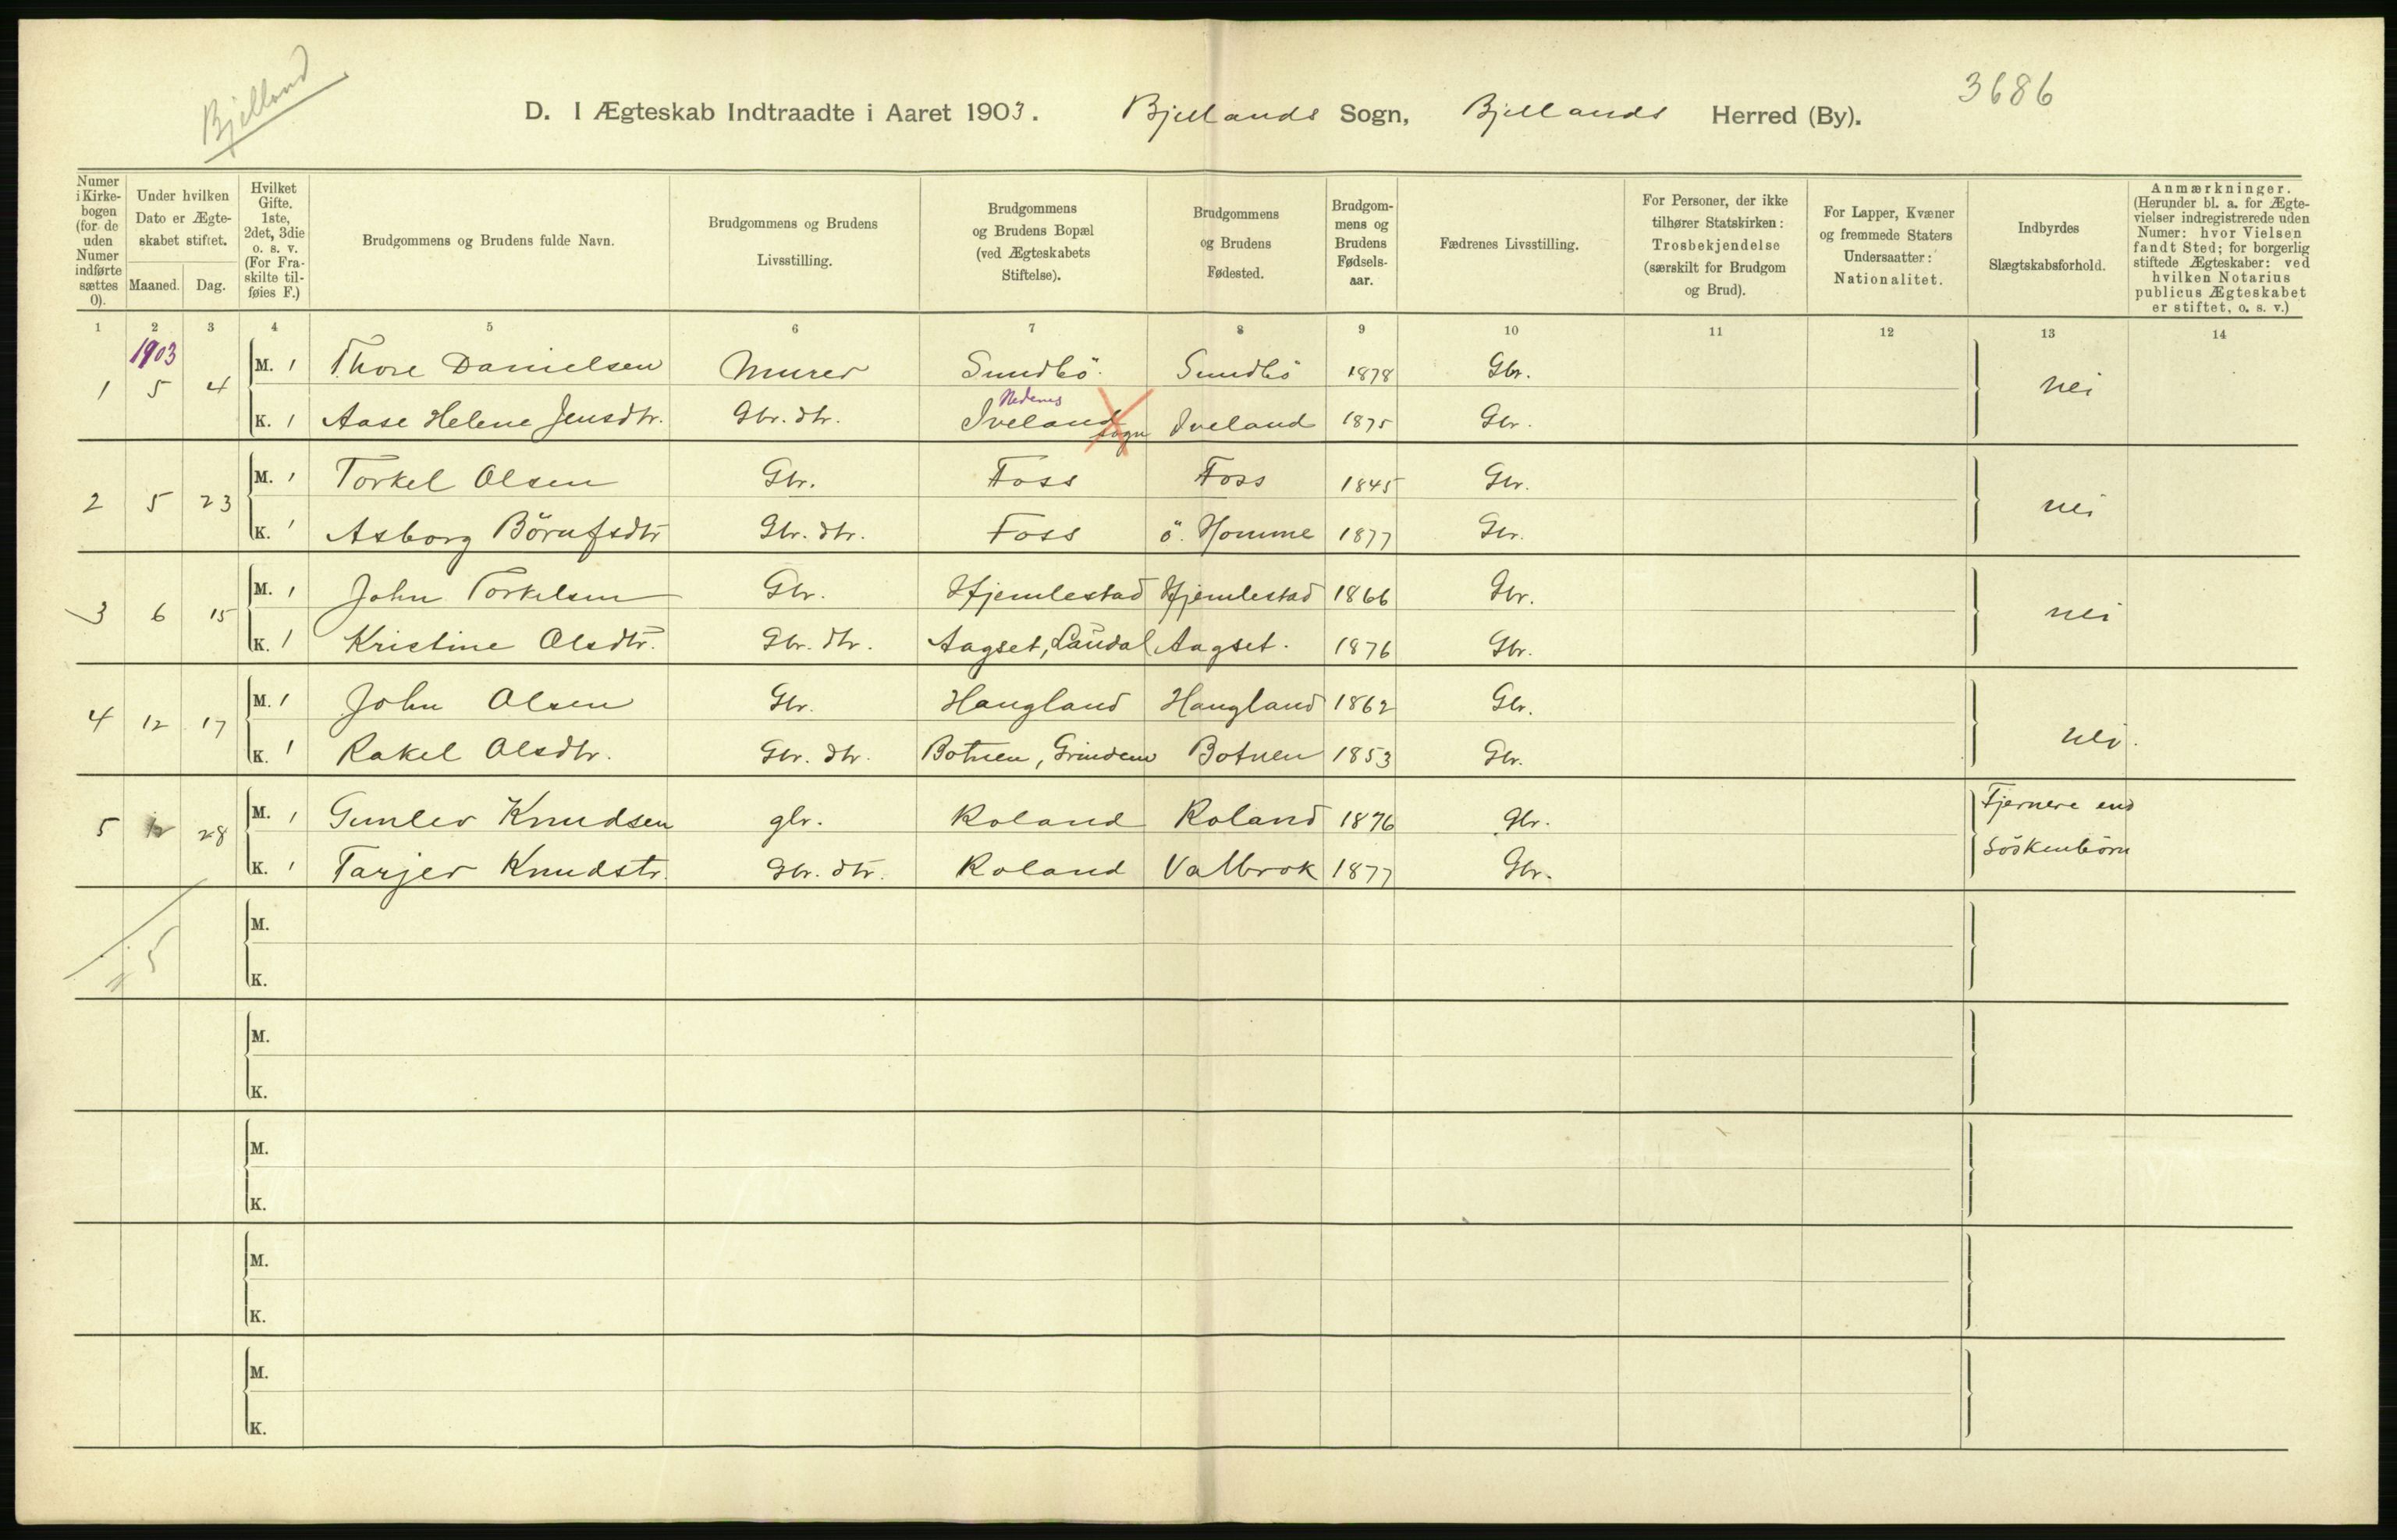 Bjelland
3686
D. I Ægteskab Indtraadte i Aaret 1903. Bjellands Sogn, Bjellands Herred (By).
Numer i Kirkebogen (for de uden Numer indførte sættes 0).
Under hvilken Dato er Ægteskabet stiftet.
Maaned. Dag.
Hvilket Gifte. 1ste, 2det, 3die o. s. v. (For Fraskilte tilføies F.)
Brudgommens og Brudens fulde Navn.
Brudgommens og Brudens Livsstilling.
Brudgommens og Brudens Bopæl (ved Ægteskabets Stiftelse).
Brudgommens og Brudens Fødested.
Brudgommens og Brudens Fødselsaar.
Fædrenes Livsstilling.
For Personer, der ikke tilhører Statskirken: Trosbekjendelse (særskilt for Brudgom og Brud).
For Lapper, Kvæner og fremmede Staters Undersaatter: Nationalitet.
Indbyrdes Slægtskabsforhold.
Anmærkninger. (Herunder bl. a. for Ægtevielser indregistrerede uden Numer: hvor Vielsen fandt Sted; for borgerlig stiftede Ægteskaber: ved hvilken Notarius publicus Ægteskabet er stiftet, o. s. v.)
1 2 3 4 5 6 7 8 9 10 11 12 13 14
1903
1 5 4 M. 1 Thore Danielsen Murer Sundbö Sundbö 1878 Gbr. nei
Nedenes
K. 1 Aase Helene Jensdtr. Gbr. dtr. Iveland sogn Iveland 1875 Gbr.
2 5 23 M. 1 Torkel Olsen Gbr. Foss Foss 1845 Gbr. nei
K. 1 Asborg Börufsdtr Gbr. dtr. Foss ö. Homme 1877 Gbr.
3 6 15 M. 1 John Torkelsen Gbr. Hjemlestad Hjemlestad 1866 Gbr. nei
K. 1 Kristine Olsdtr. Gbr. dtr. Aagset, Laudal Aagset. 1876 Gbr.
4 12 17 M. 1 John Olsen Gbr. Haugland Haugland 1862 Gbr. nei.
K. 1 Rakel Olsdtr. Gbr. dtr. Botnen, Grindem Botnen 1853 Gbr.
5 12 28 M. 1 Gunlev Knudsen gbr. Roland Roland 1876 Gbr. Fjernere end
K. 1 Tarjer Knudstr. Gbr. dtr. Roland Valbrok 1877 Gbr. Söskenbörn
M.
5
K.
M.
K.
M.
K.
M.
K.
M.
K.